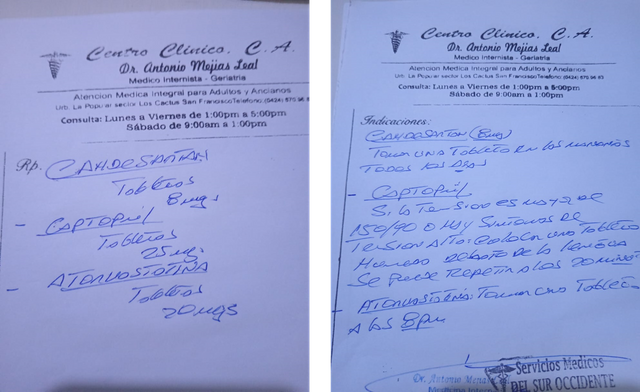 Centro Clinico, C. A.
Dr. Antonio Mejias Leal
Medico Internista - Geriatria
Atencion Medica Integral para Adultos y Ancianos
Urb. La Popular sector Los Cactus San Francisco Telefono: (0424) 675 96 8
Consulta: Lunes a Viernes de 1:00pm a 5:00pm
Sábado de 9:00am a 1:00pm
Rp.
CANDESARTAN
Tabletas
8 mgs
- CAPTOPRIL
Tabletas
25 mg.
- ATORVASTATINA
Tabletas
20 mgs
Centro Clinico, C. A.
Dr. Antonio Mejias Leal
Medico Internista - Geriatria
Atencion Medica Integral para Adultos y Ancianos
Urb. La Popular sector Los Cactus San Francisco Telefono: (0424) 675 96 83
Consulta: Lunes a Viernes de 1:00pm a 5:00pm
Sábado de 9:00am a 1:00pm
Indicaciones:
CANDESARTAN (8mg)
Tomar UNA Tableta en las mañanas
TODOS LOS DIAS
- CAPTOPRIL
Si la Tension es mayor de
150/90 o HAY SINTOMAS DE
TENSION ALTA: colocar una Tableta
debajo de la lengua
Se puede repetir a los 20 minutos
- ATORVASTATINA: Tomar una Tableta
A las 8pm
Dr. Antonio
Servicios Medicos
DEL SUR OCCIDENTE